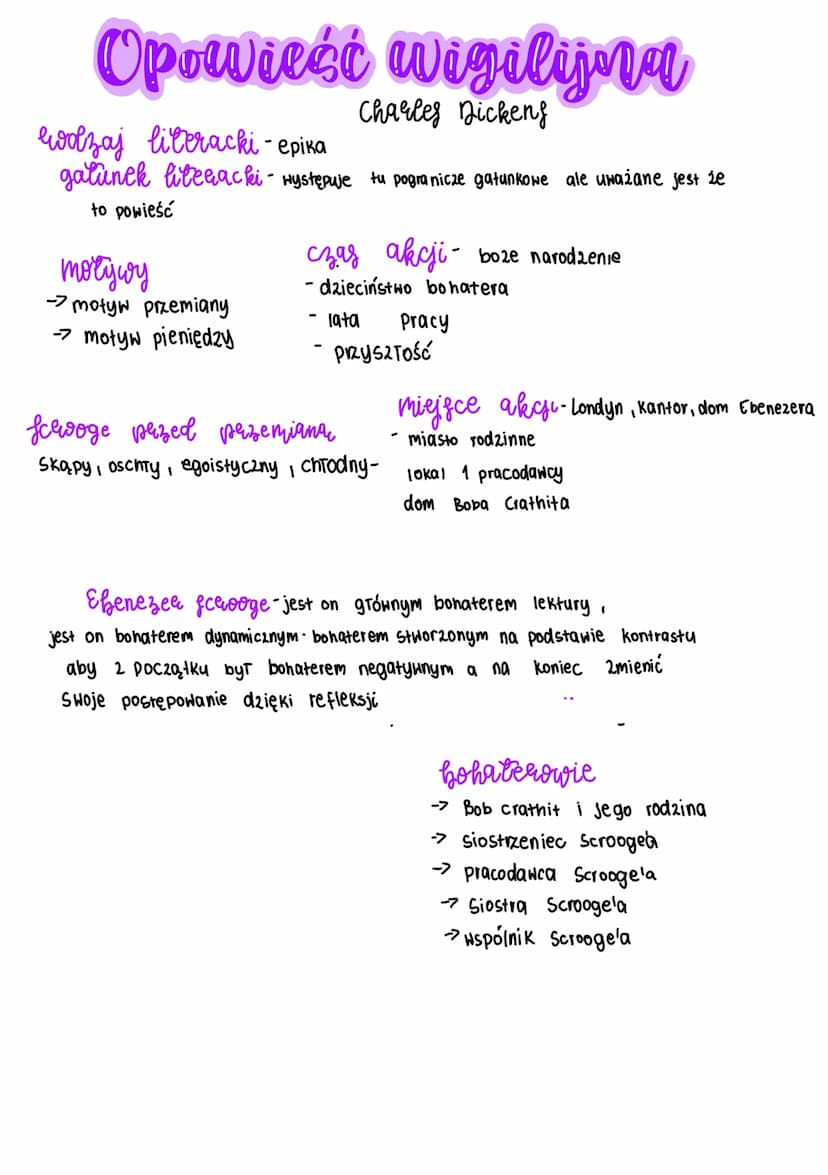 Opowieść wigilijna
Charles Dickens
rodzaj literacki - epika
gatunek literacki - występuje tu pogranicze gatunkowe ale uważane jest że
to powieść
motywy
→ motyw przemiany
→ motyw pieniędzy
czas akcji - boże narodzenie
- dzieciństwo bohatera
- lata pracy
- przyszłość
miejsce akcji - Londyn, kantor, dom Ebenezera
- miasto rodzinne
lokal 1 pracodawcy
dom Boba Crathita
scrooge przed przemianą
skąpy, oschły, egoistyczny, chłodny-
Ebenezer scrooge - jest on głównym bohaterem lektury,
jest on bohaterem dynamicznym - bohaterem stworzonym na podstawie kontrastu
aby z początku był bohaterem negatywnym a na koniec zmienić
swoje postępowanie dzięki refleksji
bohaterowie
→ Bob crathit i jego rodzina
→ siostrzeniec Scrooge'a
→ pracodawca Scrooge'a
→ Siostra Scrooge'a
→ wspólnik Scrooge'a